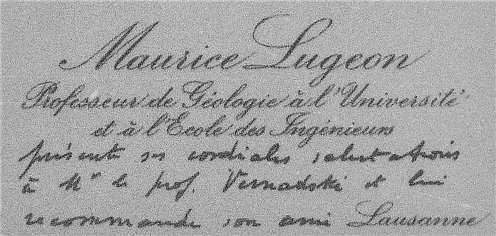 Maurice Lugeon
Professeur de Géologie à l'Université
et à l'Ecole des Ingénieurs
présente ses cordiales salutations
à Mr le prof. Vernadski et lui
recommande son ami Lausanne